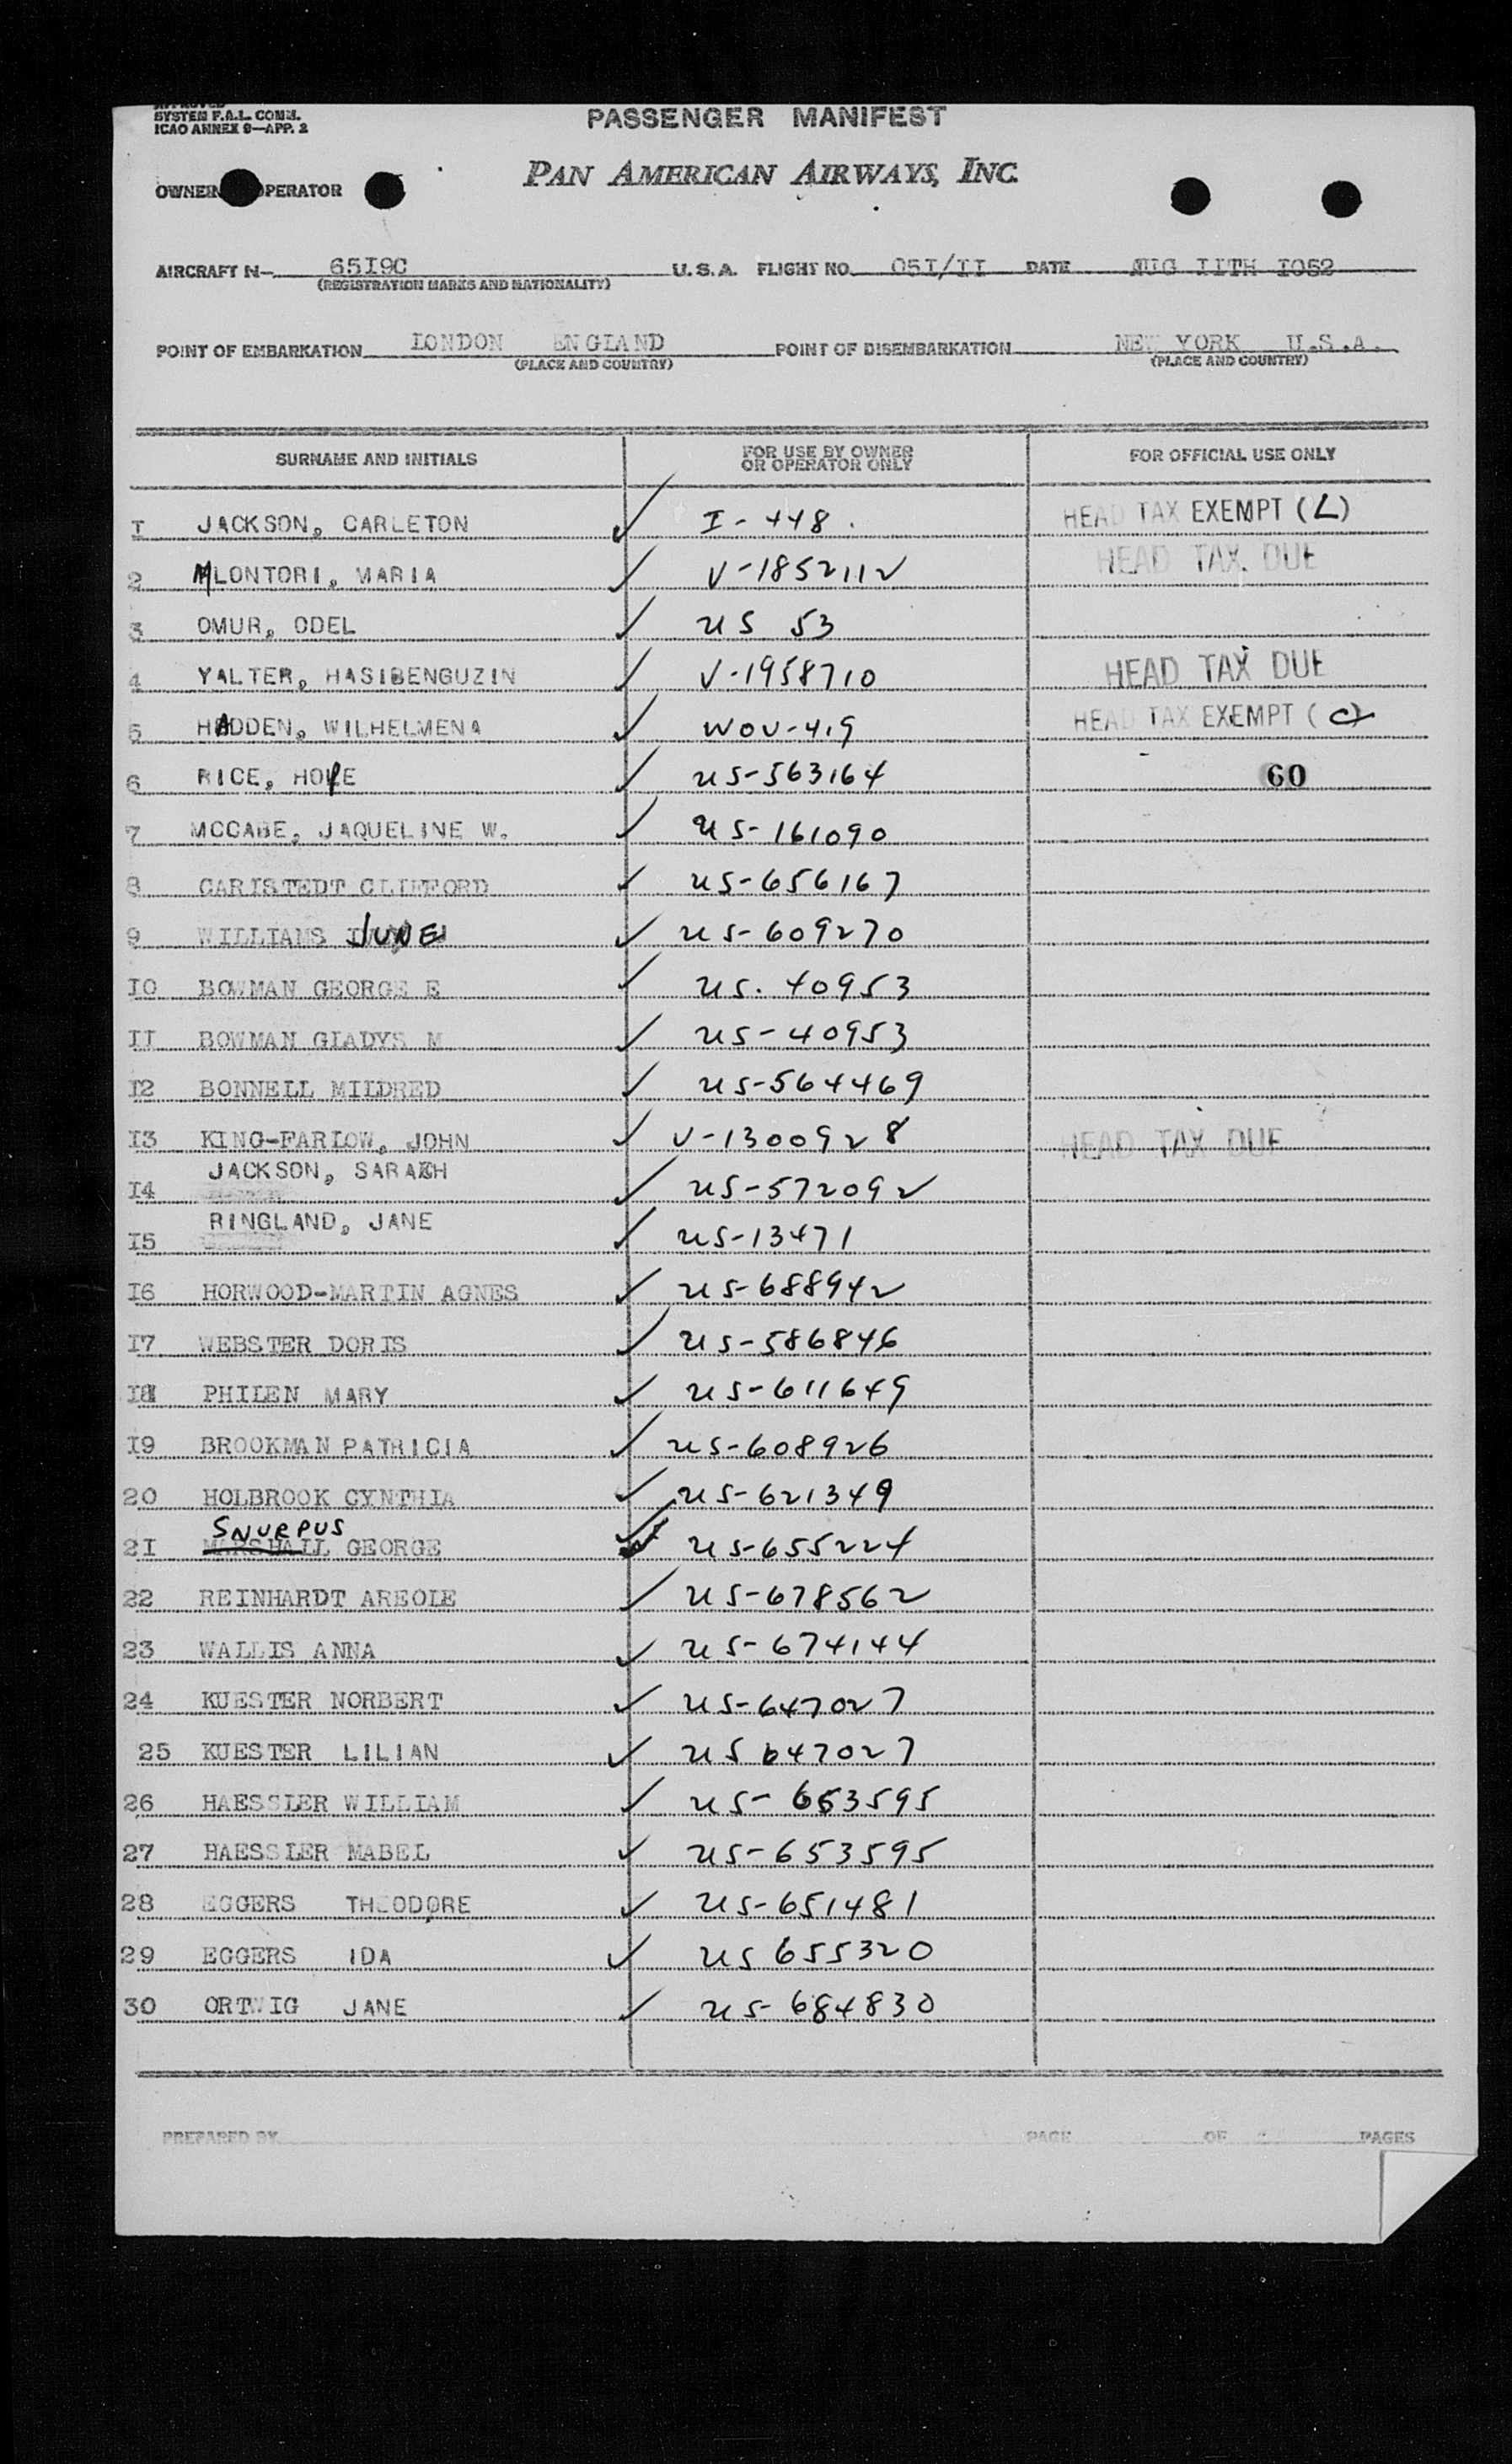 SYSTEM F.A.L. COMM.
ICAO ANNEX 9—APP. 2
PASSENGER MANIFEST
PAN AMERICAN AIRWAYS, INC.
OWNER OPERATOR
AIRCRAFT N— 65I9C U.S.A. FLIGHT NO. 05I/II DATE AUG IITH I052
(REGISTRATION MARKS AND NATIONALITY)
POINT OF EMBARKATION LONDON ENGLAND POINT OF DISEMBARKATION NEW YORK U.S.A.
(PLACE AND COUNTRY) (PLACE AND COUNTRY)
SURNAME AND INITIALS FOR USE BY OWNER OR OPERATOR ONLY FOR OFFICIAL USE ONLY
I JACKSON, CARLETON ✓ I-448. HEAD TAX EXEMPT (L)
2 MLONTORI, MARIA ✓ V-1852112 HEAD TAX DUE
3 OMUR, ODEL ✓ US 53
4 YALTER, HASIBENGUZIN ✓ V-1958710 HEAD TAX DUE
5 HADDEN, WILHELMENA ✓ WOV-419 HEAD TAX EXEMPT (C)
6 RICE, ✓ US-563164 60
7 MCCABE, JAQUELINE W. ✓ US-161090
8 CARISTEDT CLIFFORD ✓ US-656167
9 WILLIAMS JUNE ✓ US-609270
IO BOWMAN GEORGE E ✓ US. 40953
II BOWMAN GLADYS M ✓ US-40953
I2 BONNELL MILDRED ✓ US-564469
I3 KING-FARLOW, JOHN ✓ V-1300928 HEAD TAX DUE
I4 JACKSON, SARAH ✓ US-572092
I5 RINGLAND, JANE ✓ US-13471
I6 HORWOOD-MARTIN AGNES ✓ US-688942
I7 WEBSTER DORIS ✓ US-586846
I8 PHILEN MARY ✓ US-611649
I9 BROOKMAN PATRICIA ✓ US-608926
20 HOLBROOK CYNTHIA ✓ US-621349
SNURPUS
2I MARSHALL GEORGE ✓ US-655224
22 REINHARDT AREOLE ✓ US-678562
23 WALLIS ANNA ✓ US-674144
24 KUESTER NORBERT ✓ US-647027
25 KUESTER LILIAN ✓ US 647027
26 HAESSLER WILLIAM ✓ US-653595
27 HAESSLER MABEL ✓ US-653595
28 EGGERS THEODORE ✓ US-651481
29 EGGERS IDA ✓ US 655320
30 ORTWIG JANE ✓ US-684830
PREPARED BY PAGE OF PAGES